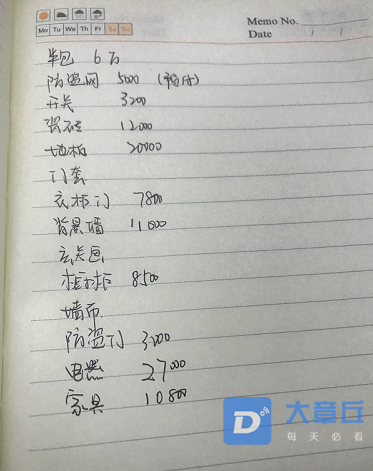 Memo No.
Mo Tu We Th Fr Sa Su
Date / /
半包 6万
防盗网 5000 (预付)
开关 3200
瓷砖 12000
地板 20000
门套
衣柜门 7800
背景墙 11000
玄关画
橱柜 8500
墙布
防盗门 3000
电器 27000
家具 10800
大章丘
每天必看